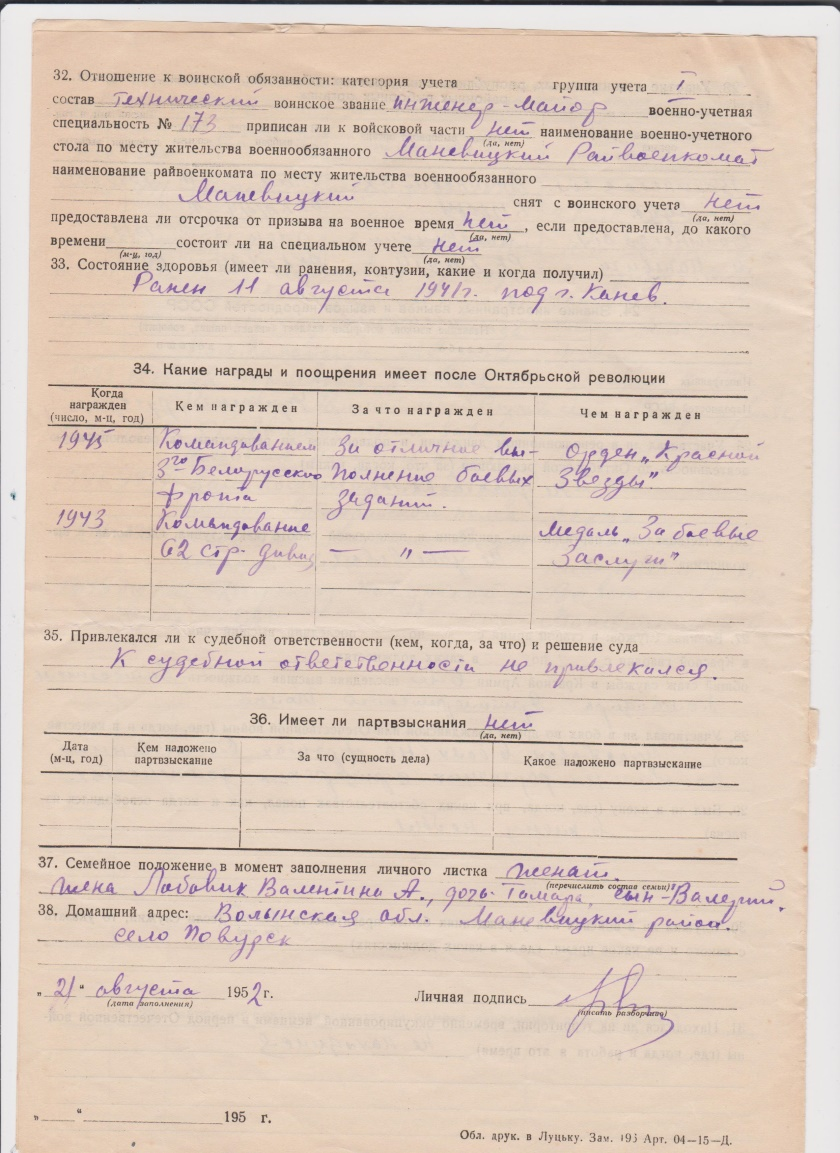 32. Отношение к воинской обязанности: категория учета группа учета I
состав технический воинское звание инженер-майор военно-учетная
специальность № 173 приписан ли к войсковой части нет наименование военно-учетного
(да, нет)
стола по месту жительства военнообязанного Маневицкий Райвоенкомат
наименование райвоенкомата по месту жительства военнообязанного
Маневицкий снят с воинского учета нет
(да, нет)
предоставлена ли отсрочка от призыва на военное время нет, если предоставлена, до какого
(да, нет)
времени состоит ли на специальном учете нет
(м-ц, год) (да, нет)
33. Состояние здоровья (имеет ли ранения, контузии, какие и когда получил)
Ранен 11 августа 1941г. под г. Канев.
34. Какие награды и поощрения имеет после Октябрьской революции
Когда награжден (число, м-ц, год) Кем награжден За что награжден Чем награжден
1945 Командованием За отличное вы- орден „Красной
3го Белорусского полнение боевых Звезды".
фронта заданий.
1943 Командование медаль „За боевые
62 стр. дивиз — „ — Заслуги"
35. Привлекался ли к судебной ответственности (кем, когда, за что) и решение суда
К судебной ответственности не привлекался.
36. Имеет ли партвзыскания нет
(да, нет)
Дата (м-ц, год) Кем наложено партвзыскание За что (сущность дела) Какое наложено партвзыскание
37. Семейное положение в момент заполнения личного листка женат.
(перечислить состав семьи)
жена Лабовик Валентина А., дочь-Тамара, сын-Валерий.
38. Домашний адрес: Волынская обл. Маневицкий район.
село Повурск
„21" августа 1952г. Личная подпись
(дата заполнения) (писать разборчиво)
„ " 195 г.
Обл. друк. в Луцьку. Зам. 193 Арт. 04—15—Д.